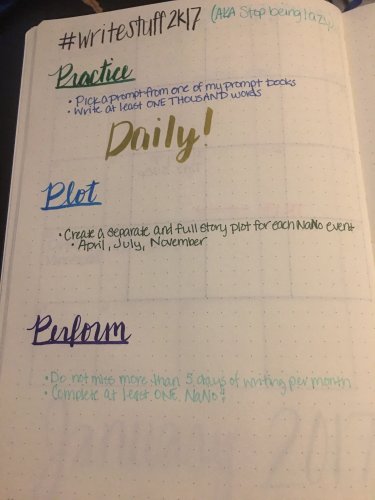 #writestuff2k17 (AKA Stop being lazy)
Practice
• Pick a prompt from one of my prompt books
• Write at least ONE THOUSAND words
Daily!
Plot
• Create a separate and full story plot for each NaNo event
• April, July, November
Perform
• Do not miss more than 5 days of writing per month
• Complete at least ONE NaNo!